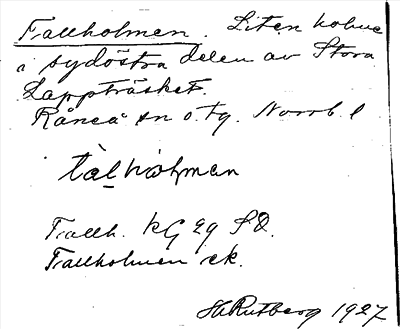 Trallholmen. Liten holme
i sydöstra delen av Stora
Lappträsket.
Råneå sn o. tg. Norrb. l.
Trallh. kG eg SD.
Trallholmen ek.
H Rutberg 1927